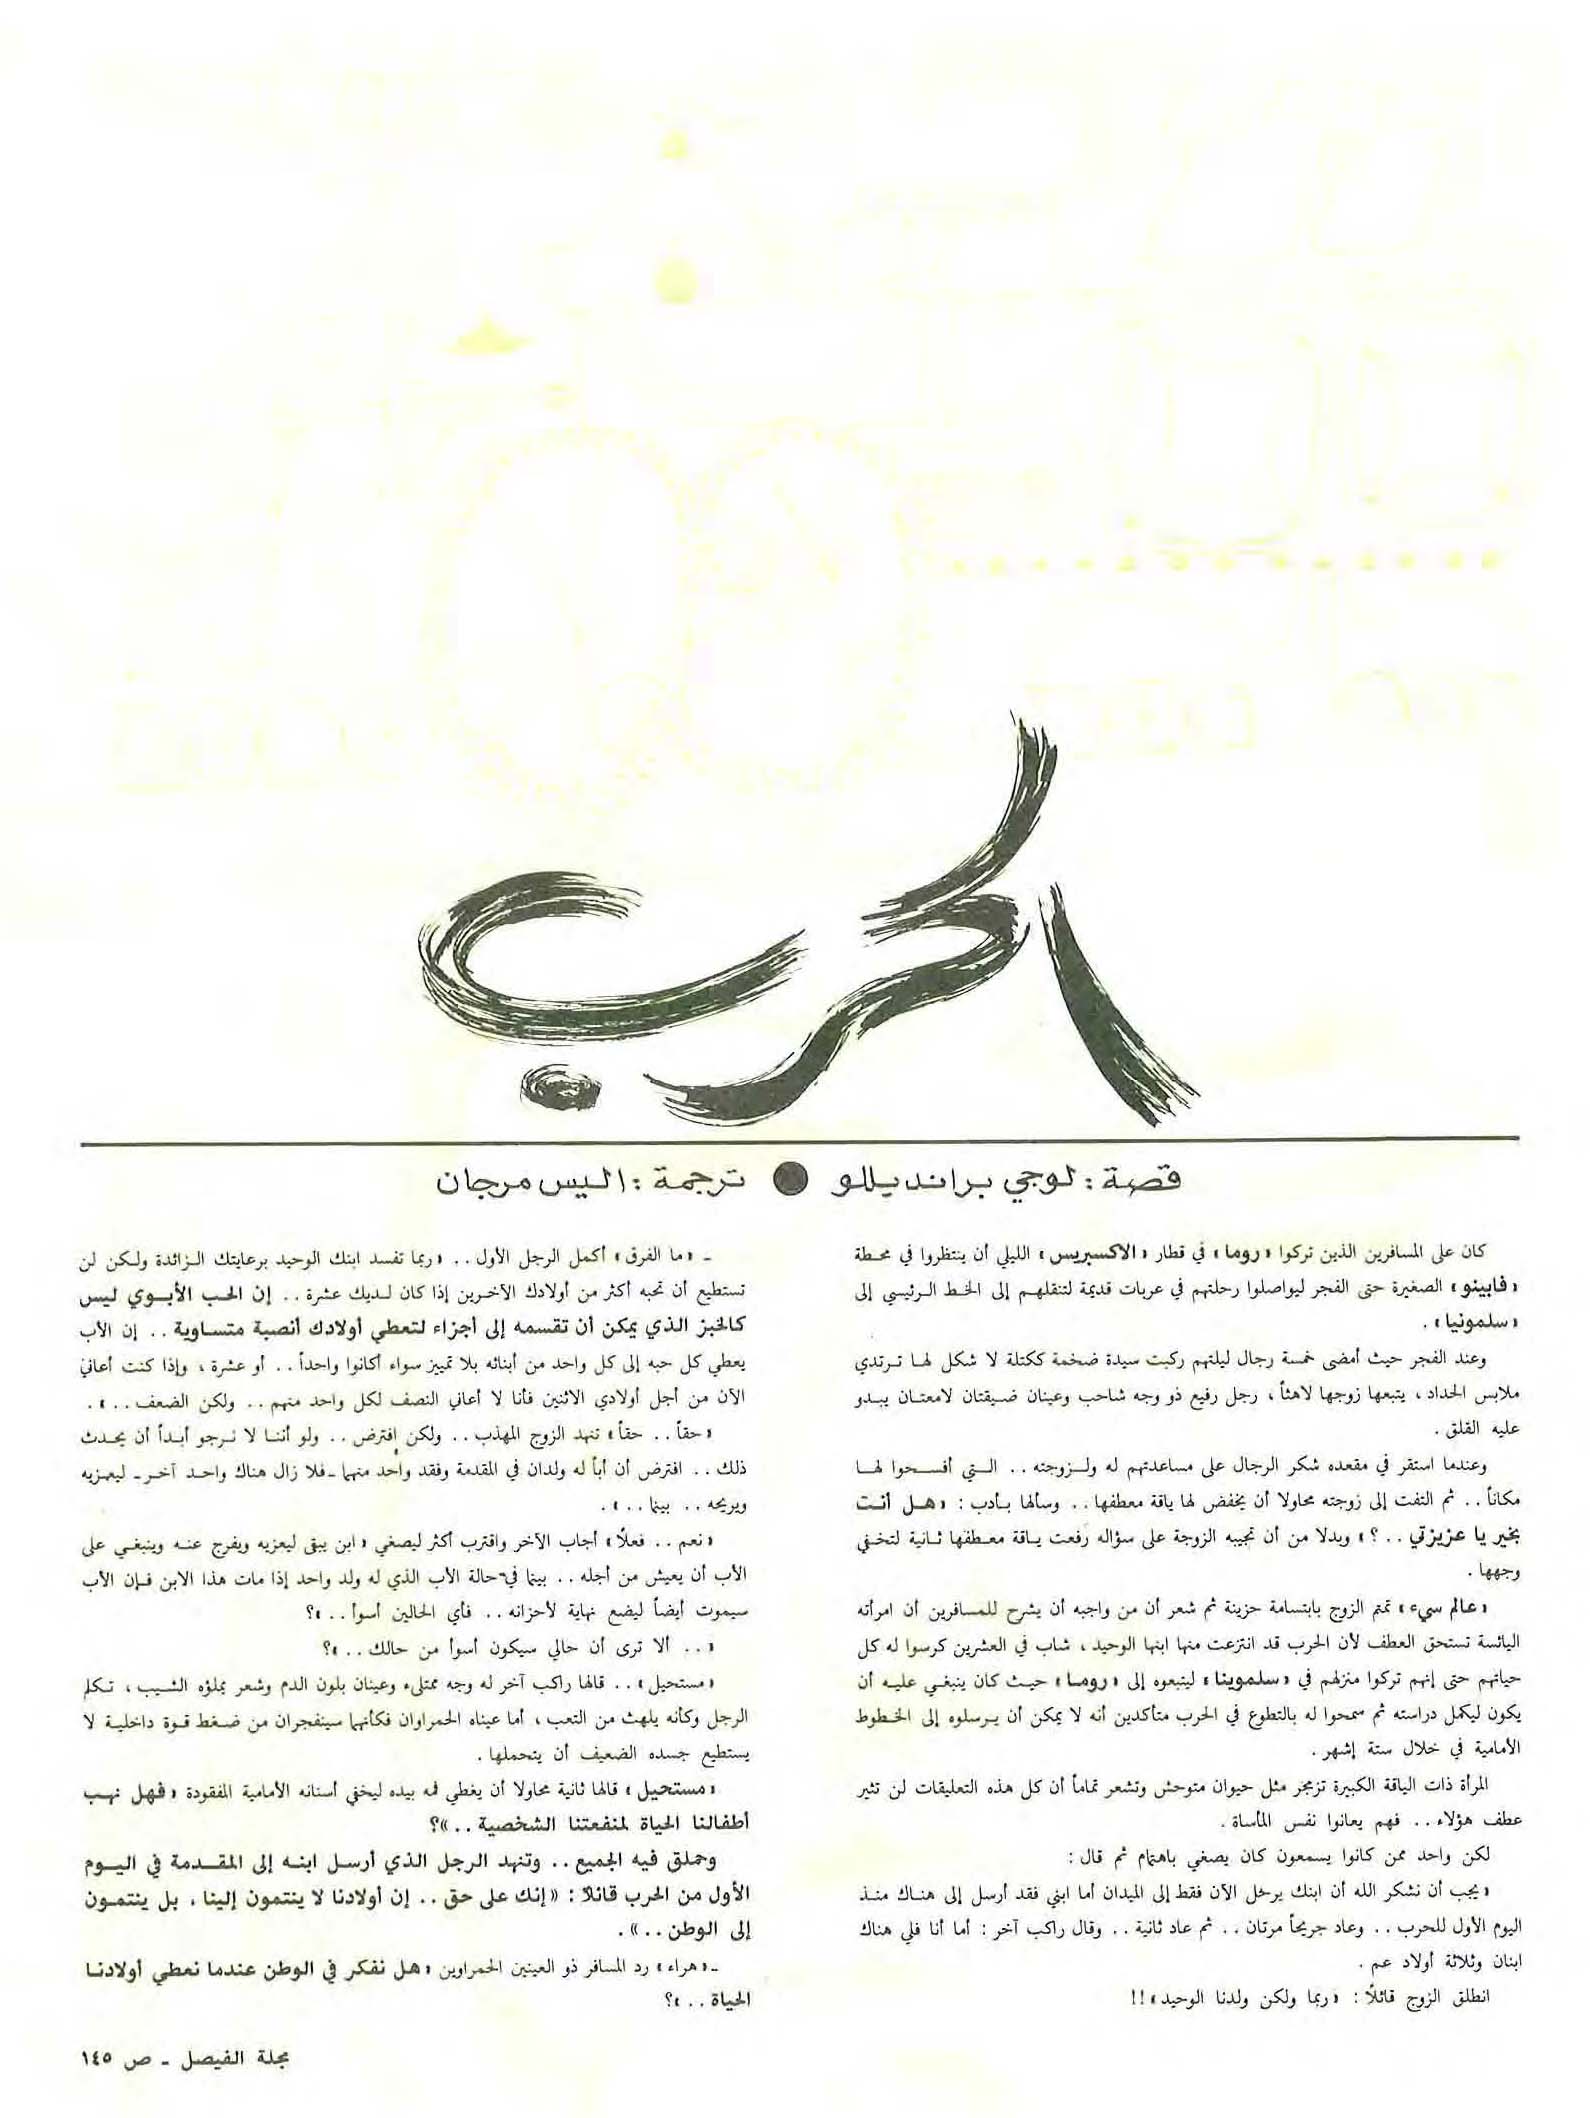 الحرب
قصة : لوجي براندیللو ● ترجمة : اليس مرجان
كان على المسافرين الذين تركوا «روما» في قطار «الاكسبريس» الليلي أن ينتظروا في محطة
«فابينو» الصغيرة حتى الفجر ليواصلوا رحلتهم في عربات قديمة لتنقلهم إلى الخط الرئيسي إلى
«سلمونيا» .
وعند الفجر حيث أمضى خمسة رجال ليلتهم ركبت سيدة ضخمة ككتلة لا شكل لها ترتدي
ملابس الحداد ، يتبعها زوجها لاهثاً ، رجل رفيع ذو وجه شاحب وعينان ضيقتان لامعتان يبدو
عليه القلق .
وعندما استقر في مقعده شكر الرجال على مساعدتهم له ولزوجته .. التي أفسحوا لها
مكاناً .. ثم التفت إلى زوجته محاولا أن يخفض لها ياقة معطفها .. وسألها بأدب : «هل أنت
بخير يا عزيزتي .. ؟» وبدلا من أن تجيبه الزوجة على سؤاله رفعت ياقة معطفها ثانية لتخفي
وجهها .
«عالم سيء» تمتم الزوج بابتسامة حزينة ثم شعر أن من واجبه أن يشرح للمسافرين أن امرأته
اليائسة تستحق العطف لأن الحرب قد انتزعت منها ابنها الوحيد ، شاب في العشرين كرسوا له كل
حياتهم حتى إنهم تركوا منزلهم في «سلموينا» ليتبعوه إلى «روما» حيث كان ينبغي عليه أن
يكون ليكمل دراسته ثم سمحوا له بالتطوع في الحرب متأكدين أنه لا يمكن أن يرسلوه إلى الخطوط
الأمامية في خلال ستة إشهر .
المرأة ذات الياقة الكبيرة تزمجر مثل حيوان متوحش وتشعر تماماً أن كل هذه التعليقات لن تثير
عطف هؤلاء .. فهم يعانوا نفس المأساة .
لكن واحد ممن كانوا يسمعون كان يصغي باهتمام ثم قال :
«يجب أن نشكر الله أن ابنك يرحل الآن فقط إلى الميدان أما ابني فقد أرسل إلى هناك منذ
اليوم الأول للحرب .. وعاد جريحاً مرتان .. ثم عاد ثانية .. وقال راكب آخر : أما أنا فلي هناك
ابنان وثلاثة أولاد عم .
انطلق الزوج قائلاً : «ربما ولكن ولدنا الوحيد»!!
- «ما الفرق» أكمل الرجل الأول .. «ربما تفسد ابنك الوحيد برعايتك الزائدة ولكن لن
تستطيع أن تحبه أكثر من أولادك الآخرين إذا كان لديك عشرة .. إن الحب الأبوي ليس
كالخبز الذي يمكن أن تقسمه إلى أجزاء لتعطي أولادك أنصبة متساوية .. إن الأب
يعطي كل حبه إلى كل واحد من أبنائه بلا تمييز سواء أكانوا واحداً .. أو عشرة ، وإذا كنت أعاني
الآن من أجل أولادي الاثنين فأنا لا أعاني النصف لكل واحد منهم .. ولكن الضعف ..» .
«حقاً .. حقاً» تنهد الزوج المهذب .. ولكن إفترض .. ولو أننا لا نرجو أبداً أن يحدث
ذلك .. افترض أن أباً له ولدان في المقدمة وفقد واحد منهما - فلا زال هناك واحد آخر - ليعزيه
ويريحه .. بينما ..» .
«نعم .. فعلاً» أجاب الآخر واقترب أكثر ليصغي «ابن يبقى ليعزيه ويفرج عنه وينبغي على
الأب أن يعيش من أجله .. بينما في حالة الأب الذي له ولد واحد إذا مات هذا الابن فإن الأب
سيموت أيضاً ليضع نهاية لأحزانه .. فأي الحالين أسوأ ..»؟
«.. ألا ترى أن حالي سيكون أسوأ من حالك ..»؟
«مستحيل» .. قالها راكب آخر له وجه ممتلىء وعينان بلون الدم وشعر يملؤه الشيب ، تكلم
الرجل وكأنه يلهث من التعب ، أما عيناه الحمراوان فكأنهما سينفجران من ضغط قوة داخلية لا
يستطيع جسده الضعيف أن يتحملها .
«مستحيل» قالها ثانية محاولا أن يغطي فمه بيده ليخفي أسنانه الأمامية المفقودة «فهل نهب
أطفالنا الحياة لمنفعتنا الشخصية ..»؟
وحملق فيه الجميع .. وتنهد الرجل الذي أرسل ابنه إلى المقدمة في اليوم
الأول من الحرب قائلاً : «إنك على حق .. إن أولادنا لا ينتمون إلينا ، بل ينتمون
إلى الوطن ..» .
- «هراء» رد المسافر ذو العينين الحمراوين «هل نفكر في الوطن عندما نعطي أولادنا
الحياة ..»؟
مجلة الفيصل - ص ١٤٥